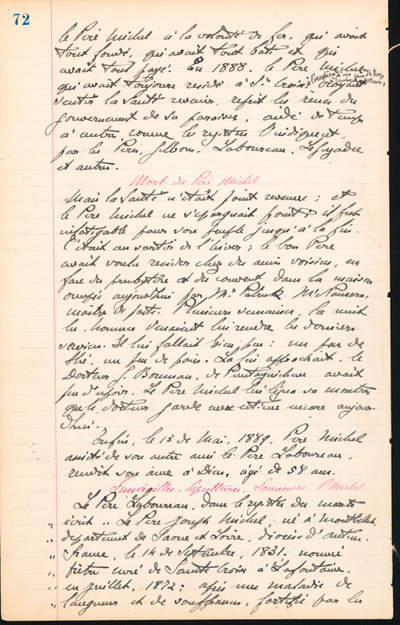 72
le Père Michel à la volonté de fer, qui avait
tout fondé, qui avait tout bâti et qui
avait tout payé. En 1888, le Père Michel
qui avait toujours résidé à Ste Croix, croyant
sentir la santé revenir, reprit les rênes du
gouvernement de sa paroisse, aidé de temps
à autre, comme le registre l'indique,
par les Pères, Laboureau,
et autres.
Mort du Père Michel.
Mais la santé n'était point revenue ; et
le Père Michel ne s'épargnait point ; il fut
infatigable pour son peuple jusqu'à la fin.
C'était au sortir de l'hiver ; le bon Père
avait voulu résider chez des amis voisins, en
face du presbytère et du couvent dans la maison
occupée aujourd'hui par Mr Patrick
maître de poste. Plusieurs semaines, la nuit
les hommes venaient lui rendre les derniers
services. Il lui fallait bien peu : un peu de
thé, un peu de pain. La fin approchait, le
Docteur de Penetanguishene avait
peu d'espoir. Le Père Michel lui légua sa montre
que le docteur garde avec estime encore aujour-
d'hui.
Enfin, le 13 de Mai, 1889, Père Michel
assisté de son autre ami le Père Laboureau,
rendit son âme à Dieu, âgé de 58 ans.
Funérailles. Sépultures. Souvenirs. P. Michel
Le Père Laboureau, dans le registre des morts
écrit : " Le Père Joseph Michel, né à
" département de Saone et Loire, diocèse d'Autun,
" France, le 14 de Septembre, 1831. nommé
" prêtre curé de Sainte Croix à Lafontaine,
" en juillet, 1872 ; après une maladie de
" langueur et de souffrances, fortifié par les